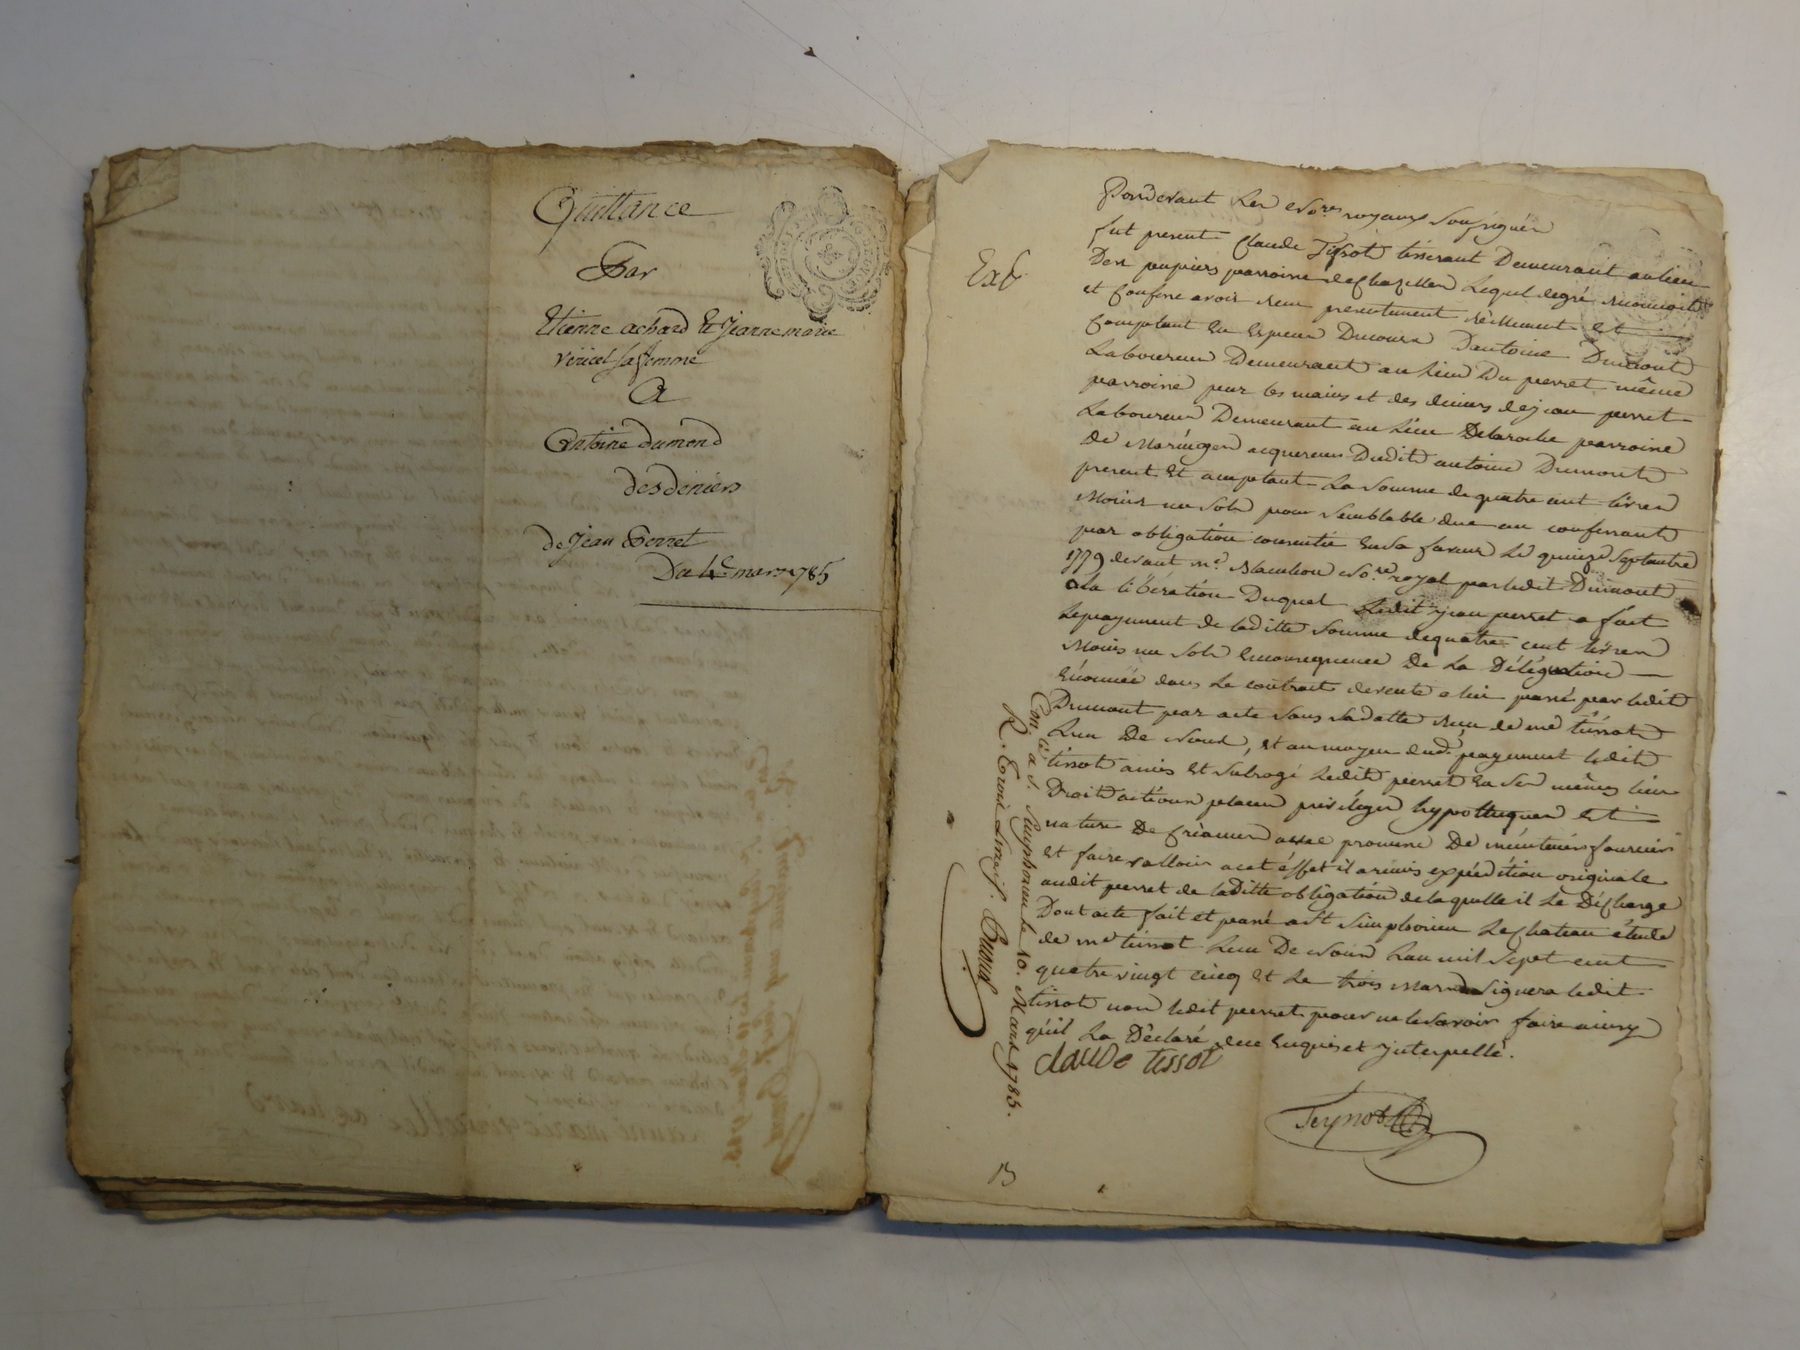 Quittance
Par
Etienne achard Et Jeanne marie
viricel sa femme
A
Antoine dumond
des deniers
de Jean Perret
Du 4e mars 1785
Exp
Pardevant Les No.res royaux Soussignés
fut present Claude Tissot tisserant Demeurant au lieu
Des parroisse de Chazelles Lequel de gré reconnoit
et Confesse avoir reçu presentement réellement Et
Comptant En Especes Ducours D'antoine Dumont
Laboureur Demeurant au Lieu Du perret même
parroisse par les mains et des deniers de jean perret
Laboureur Demeurant au Lieu Delaroche parroisse
de Maringes acquereur Dudit antoine Dumont
present Et acceptant La Somme de quatre cent livres
Moins un Sols pour Semblable due au confessant
par obligation consentie En sa faveur Le quinze Septembre
1779 devant me. No.re royal par ledit Dumont
a la libération Duquel Ledit jean perret a fait
Le payement de laditte Somme de quatre cent livres
Moins un Sols En consequence De La Délégation
Enoncée dans Le contrat de vente a lui passé par ledit
Dumont par acte Sous Sa datte reçu de me tissot
L'un De Nous, Et au moyen dud. payement ledit
tissot a mis Et Subrogé Ledit perret En Ses mêmes lieu
Droits actions places privileges hypotheques Et
nature De Créances avec promesse De maintenir fournir
Et faire valloir a cet éffet il a remis expédition originale
audit perret de laditte obligation de laquelle il Le Décharge
Dont acte fait et passé a St Simphorien Le Chateau étude
de me tissot L'un De Nous L'an mil Sept cent
quatre vingt cinq Et Le trois Mars Signera ledit
tissot non ledit perret pour ne le Savoir faire ainsy
qu'il La Déclaré de ce Enquis et Interpellé.
claude tissot
Con. lé a S. Simphorien le 10. Mars 1785.
R. trois livres